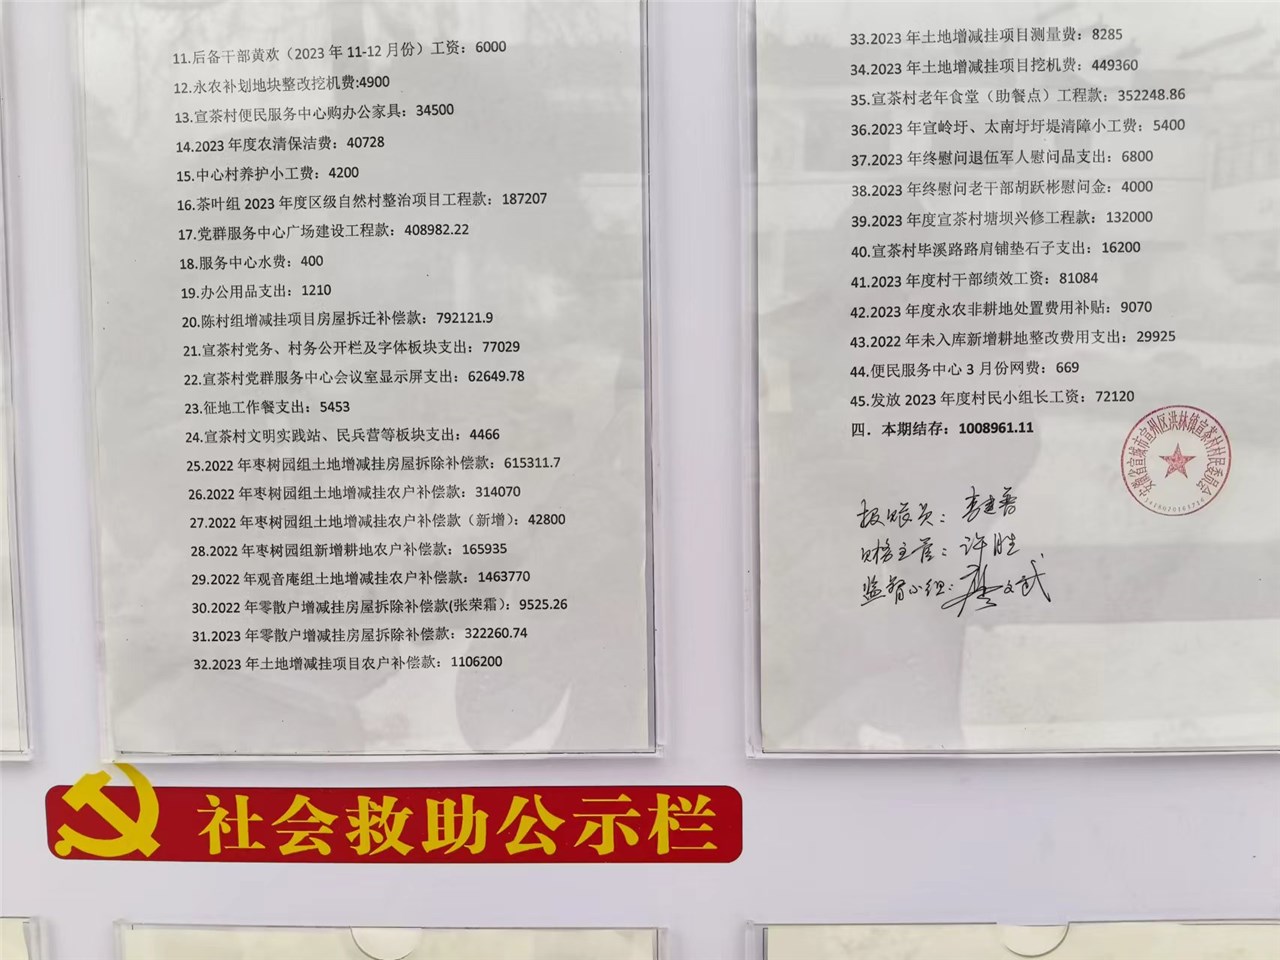 11.后备干部黄欢（2023 年 11-12 月份）工资：6000
12.永农补划地块整改挖机费:4900
13.宣茶村便民服务中心购办公家具：34500
14.2023 年度农清保洁费：40728
15.中心村养护小工费：4200
16.茶叶组 2023 年度区级自然村整治项目工程款：187207
17.党群服务中心广场建设工程款：408982.22
18.服务中心水费：400
19.办公用品支出：1210
20.陈村组增减挂项目房屋拆迁补偿款：792121.9
21.宣茶村党务、村务公开栏及字体板块支出：77029
22.宣茶村党群服务中心会议室显示屏支出：62649.78
23.征地工作餐支出：5453
24.宣茶村文明实践站、民兵营等板块支出：4466
25.2022 年枣树园组土地增减挂房屋拆除补偿款：615311.7
26.2022 年枣树园组土地增减挂农户补偿款：314070
27.2022 年枣树园组土地增减挂农户补偿款（新增）：42800
28.2022 年枣树园组新增耕地农户补偿款：165935
29.2022 年观音庵组土地增减挂农户补偿款：1463770
30.2022 年零散户增减挂房屋拆除补偿款(张荣霜）：9525.26
31.2023 年零散户增减挂房屋拆除补偿款：322260.74
32.2023 年土地增减挂项目农户补偿款：1106200
33.2023 年土地增减挂项目测量费：8285
34.2023 年土地增减挂项目挖机费：449360
35.宣茶村老年食堂（助餐点）工程款：352248.86
36.2023 年宣岭圩、太南圩圩堤清障小工费：5400
37.2023 年终慰问退伍军人慰问品支出：6800
38.2023 年终慰问老干部胡跃彬慰问金：4000
39.2023 年度宣茶村塘坝兴修工程款：132000
40.宣茶村毕溪路路肩铺垫石子支出：16200
41.2023 年度村干部绩效工资：81084
42.2023 年度永农非耕地处置费用补贴：9070
43.2022 年未入库新增耕地整改费用支出：29925
44.便民服务中心 3 月份网费：669
45.发放 2023 年度村民小组长工资：72120
四．本期结存：1008961.11
安徽省宣城市宣州区洪林镇宣茶村村民委员会
报账员：李建春
财务主管：许胜
监督小组：
社会救助公示栏